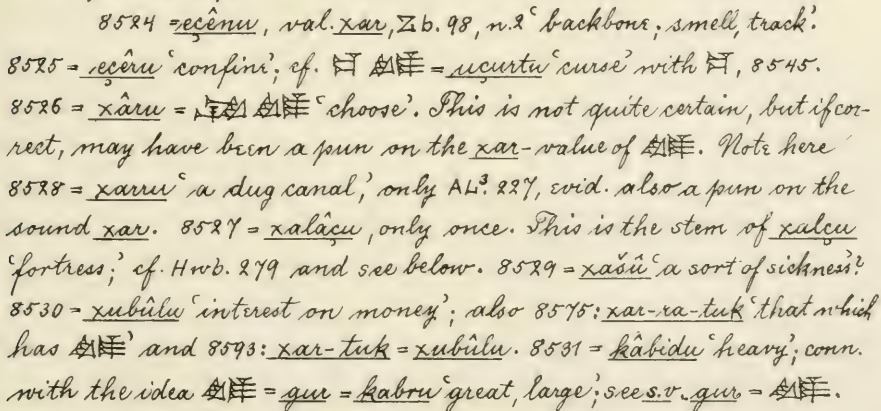 8524 = eçênu, val. xar, Zb. 98, n. 2 ‘backbone; smell, track’.
8525 = eçêru ‘confine’; cf. = uçurtu ‘curse’ with , 8545.
8526 = xâru = ‘choose’. This is not quite certain, but if cor-
rect, may have been a pun on the xar-value of . Note here
8528 = xarru ‘a dug canal,’ only AL³. 227, evid. also a pun on the
sound xar. 8527 = xalâçu, only once. This is the stem of xalçu
‘fortress;’ cf. Hwb. 279 and see below. 8529 = xašû ‘a sort of sickness?’
8530 = xubûlu ‘interest on money’; also 8575: xar-ra-tuk ‘that which
has ’ and 8593: xar-tuk = xubûlu. 8531 = kâbidu ‘heavy’; conn.
with the idea = gur = kabru ‘great, large’; see s.v. gur = .